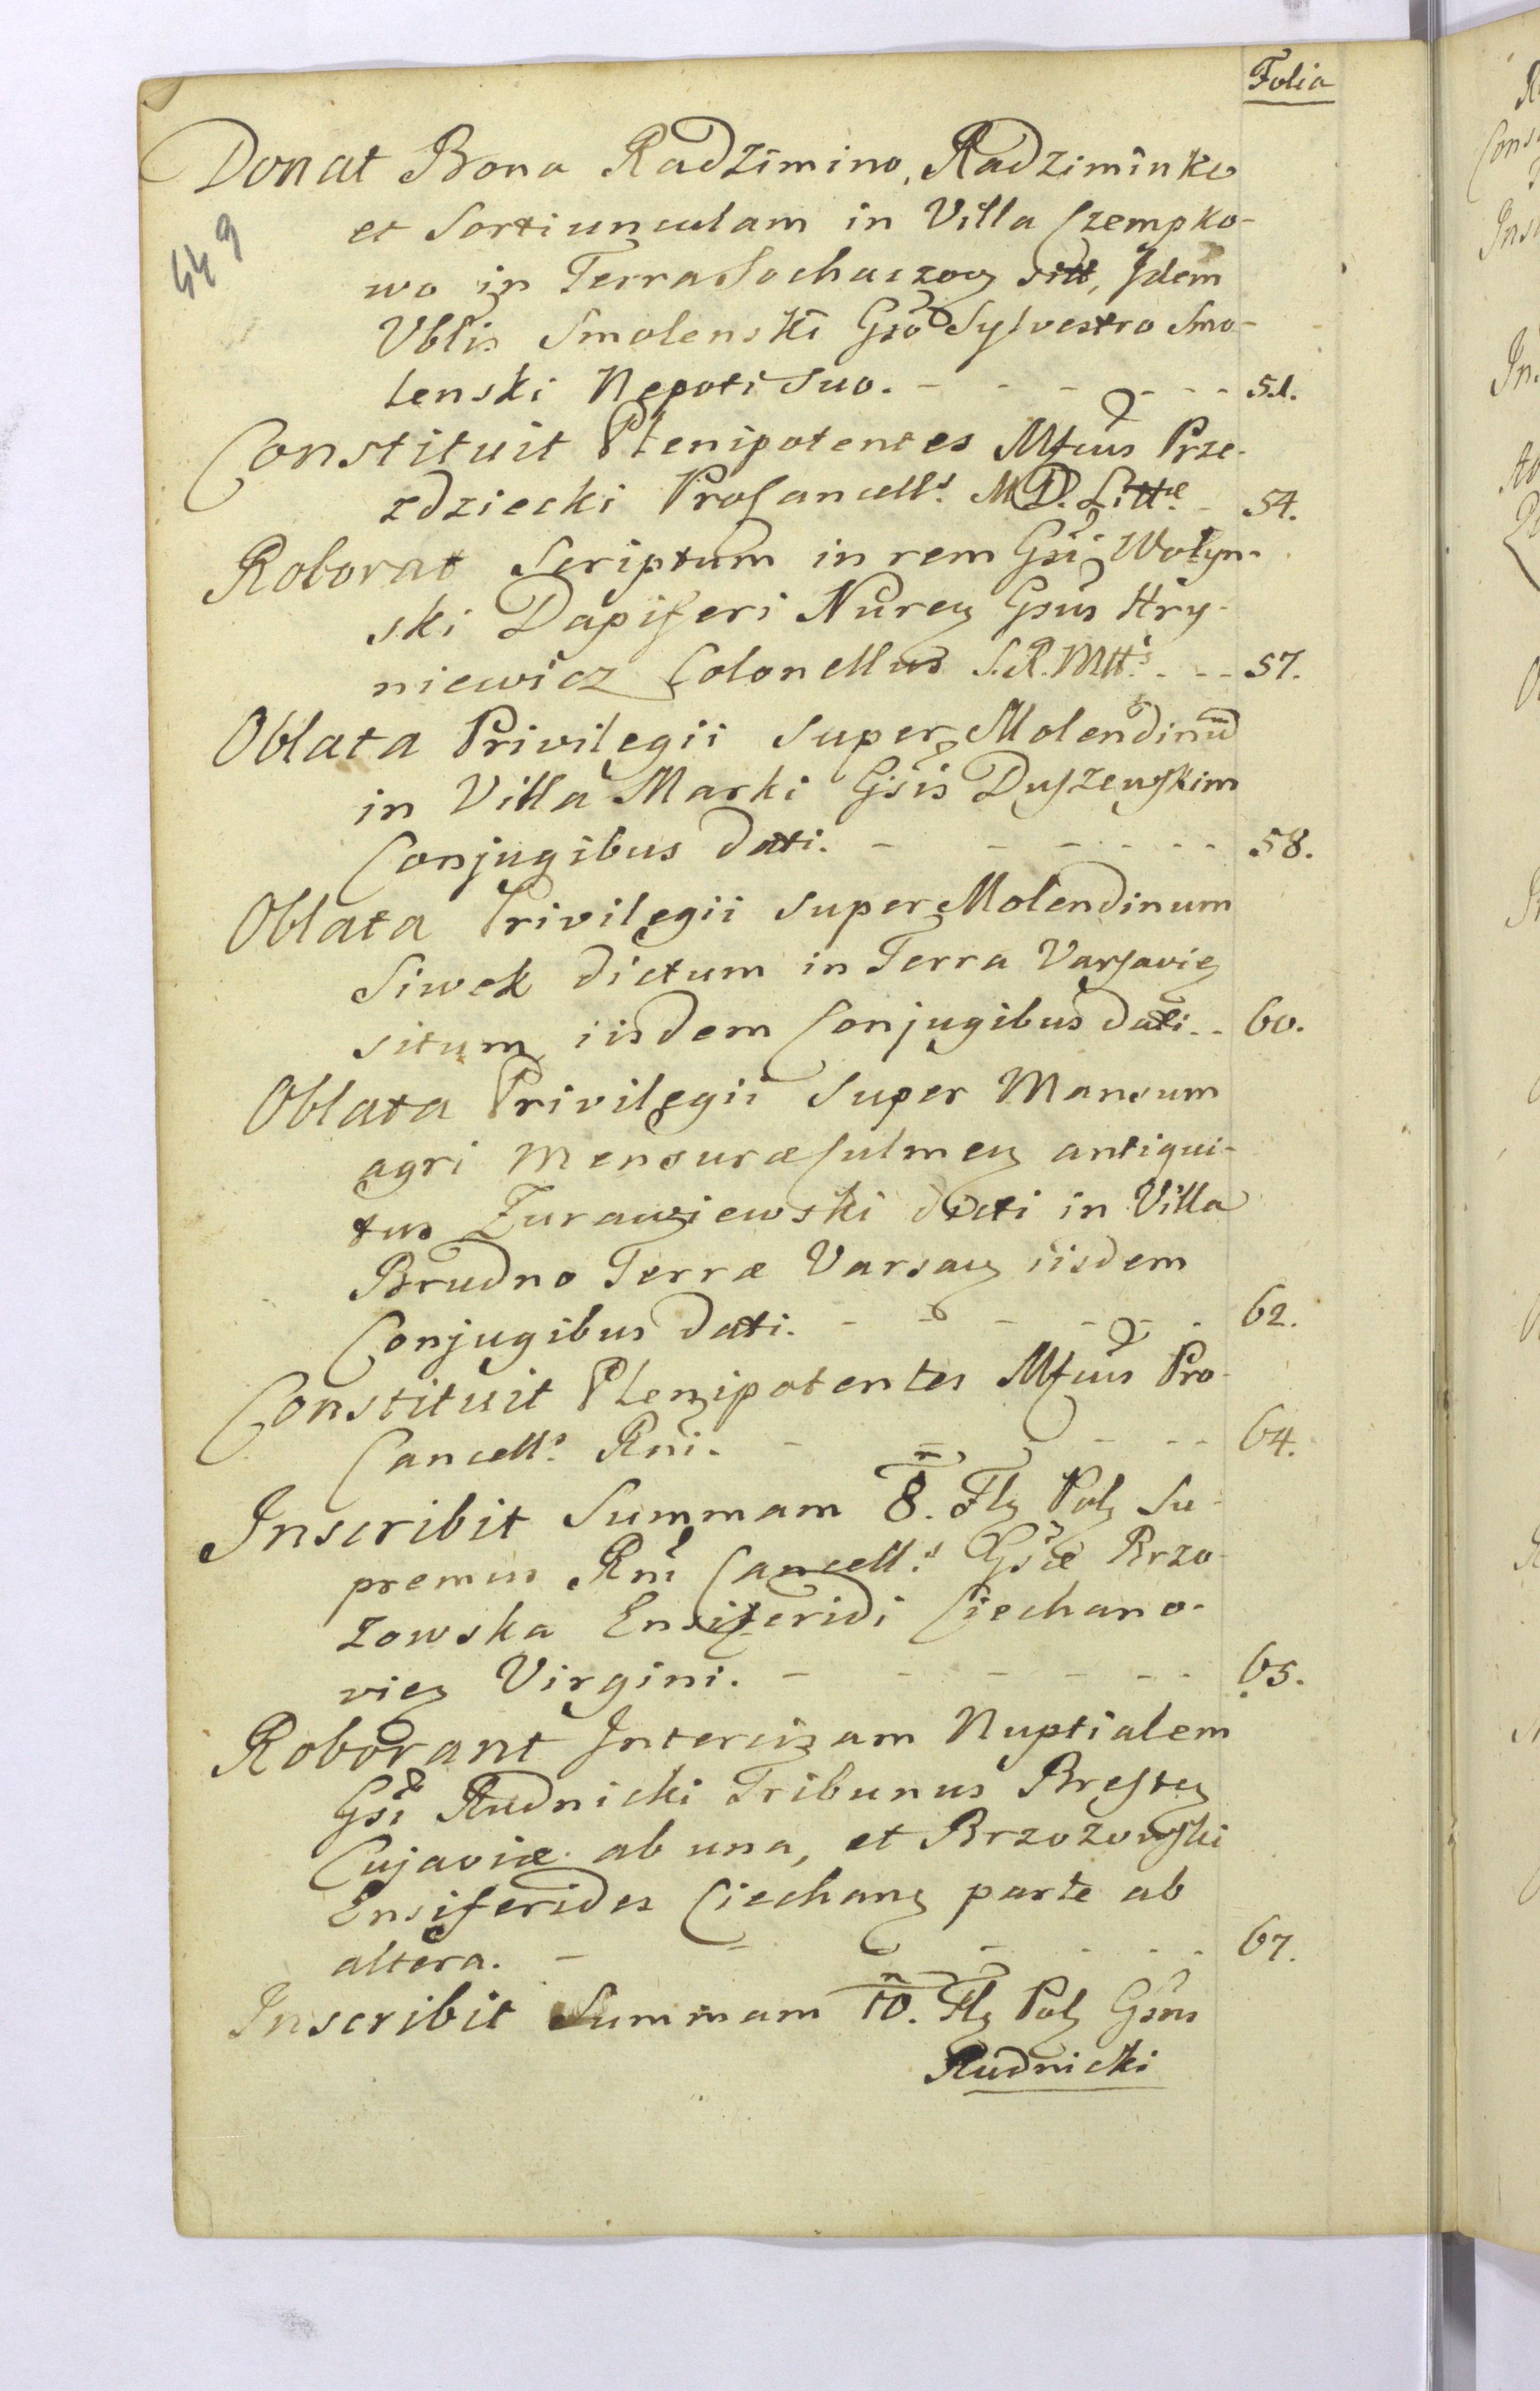 Folia
Donat Bona Radzimino, Radziminko
449
et Sortiunculam in Villa Czempko-
wo in Terra Sochaczov sitt, Idem
Ublis Smolenski Gso Sylvestro Smo-
lenski Nepoti suo. - - - - - - 51.
Constituit Plenipotentes Mfcus Prze-
zdziecki ProCancells. M.D. Littæ. - 54.
Roborat Scriptum in rem Gsi Wołyn-
ski Dapiferi Nuren Gsus Hry-
niewicz Colonellus S.R.Mttis. - - - 57.
Oblata Privilegii super Molendinū
in Villa Marki Gsis Duszewskim
Conjugibus dati. - - - - - - 58.
Oblata Privilegii super Molendinum
Siwek dictum in Terra Varsavien
situm iisdem Conjugibus dati. - - 60.
Oblata Privilegii super Mansum
agri Mensuræ Culmen antiqui-
tus Zurawiewski dicti in Villa
Brudno Terræ Varsav iisdem
Conjugibus dati. - - - - - - 62.
Constituit Plenipotentes Mfcus Pro-
Cancells. Rni. - - - - - - 64.
Inscribit Summam 8. Fl Pol Su-
premus Rni Cancells. Gsæ Brzo-
zowska Ensiferidi Ciechano-
vien Virgini. - - - - - - 65.
Roborant Intercizam Nuptialem
Gsi Rudnicki Tribunus Bresten
Cujaviæ ab una, et Brzozowski
Ensiferides Ciechan parte ab
altera. - - - - - - 67.
Inscribit Summam 10. Fl Pol Gsus
Rudnicki